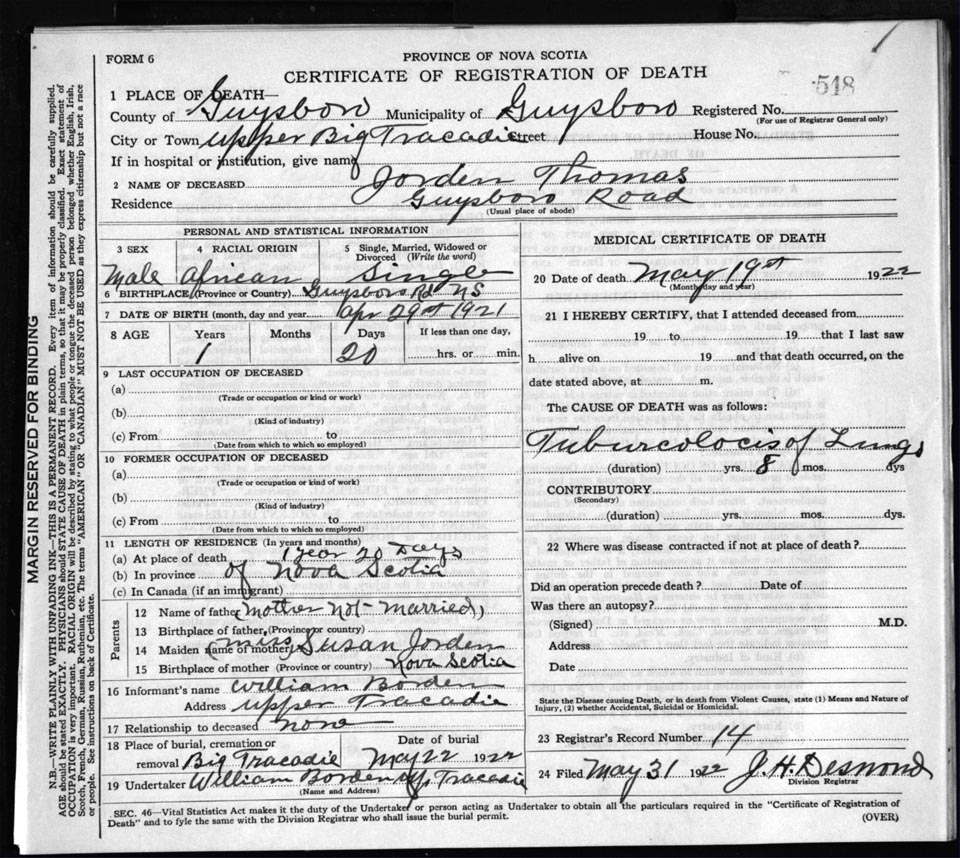 FORM 6
PROVINCE OF NOVA SCOTIA
CERTIFICATE OF REGISTRATION OF DEATH
518
1 PLACE OF DEATH—
County of Guysboro Municipality of Guysboro Registered No.
(For use of Registrar General only)
City or Town Upper Big Tracadie Street House No.
If in hospital or institution, give name
2 NAME OF DECEASED Jorden Thomas
Residence Guysboro Road
(Usual place of abode)
PERSONAL AND STATISTICAL INFORMATION
3 SEX 4 RACIAL ORIGIN 5 Single, Married, Widowed or Divorced (Write the word)
Male African Single
6 BIRTHPLACE (Province or Country) Guysboro Rd NS
7 DATE OF BIRTH (month, day and year) Apr 29th 1921
8 AGE Years Months Days If less than one day,
1 20 hrs. or min.
9 LAST OCCUPATION OF DECEASED
(a)
(Trade or occupation or kind or work)
(b)
(Kind of industry)
(c) From to
(Date from which to which so employed)
10 FORMER OCCUPATION OF DECEASED
(a)
(Trade or occupation or kind of work)
(b)
(Kind of industry)
(c) From to
(Date from which to which so employed)
11 LENGTH OF RESIDENCE (In years and months)
(a) At place of death 1 year 20 Days
(b) In province of Nova Scotia
(c) In Canada (if an immigrant)
Parents
12 Name of father (Mother Not Married)
13 Birthplace of father (Province or country)
14 Maiden name of mother (Miss) Susan Jorden
15 Birthplace of mother (Province or country) Nova Scotia
16 Informant's name William Borden
Address Upper Tracadie
17 Relationship to deceased none
18 Place of burial, cremation or removal Big Tracadie Date of burial May 22 1922
19 Undertaker William Borden Tracadie
(Name and Address)
MEDICAL CERTIFICATE OF DEATH
20 Date of death May 19st 1922
(Month, day and year)
21 I HEREBY CERTIFY, that I attended deceased from
19 to 19 that I last saw
h alive on 19 and that death occurred, on the
date stated above, at m.
The CAUSE OF DEATH was as follows:
Tuburcolocis of Lungs
(duration) yrs. 8 mos. dys
CONTRIBUTORY
(Secondary)
(duration) yrs. mos. dys.
22 Where was disease contracted if not at place of death?
Did an operation precede death? Date of
Was there an autopsy?
(Signed) M.D.
Address
Date
State the Disease causing Death, or in death from Violent Causes, state (1) Means and Nature of
Injury, (2) whether Accidental, Suicidal or Homicidal.
23 Registrar's Record Number 14
24 Filed May 31 1922 J. H. Desmond
Division Registrar
SEC. 46—Vital Statistics Act makes it the duty of the Undertaker or person acting as Undertaker to obtain all the particulars required in the "Certificate of Registration of
Death" and to fyle the same with the Division Registrar who shall issue the burial permit.
(OVER)
MARGIN RESERVED FOR BINDING
N.B.—WRITE PLAINLY WITH UNFADING INK—THIS IS A PERMANENT RECORD. Every item of information should be carefully supplied.
AGE should be stated EXACTLY. PHYSICIANS should STATE CAUSE OF DEATH in plain terms, so that it may be properly classified. Exact statement of
OCCUPATION is very important. RACIAL ORIGIN will be described by stating to what people or tongue the deceased person belonged whether English, Irish,
Scotch, French, German, Russian, Ruthenian, etc. The terms "AMERICAN" OR "CANADIAN" MUST NOT BE USED as they express citizenship but not a race
or people. See instructions on back of Certificate.